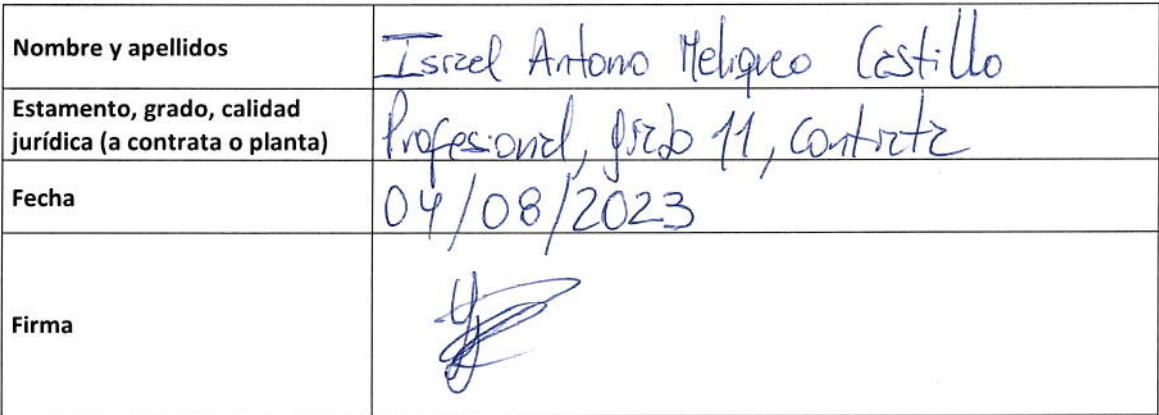 Nombre y apellidos
Israel Antonio Meliqueo Castillo
Estamento, grado, calidad
jurídica (a contrata o planta)
Profesional, grado 11, Contrata
Fecha
04/08/2023
Firma